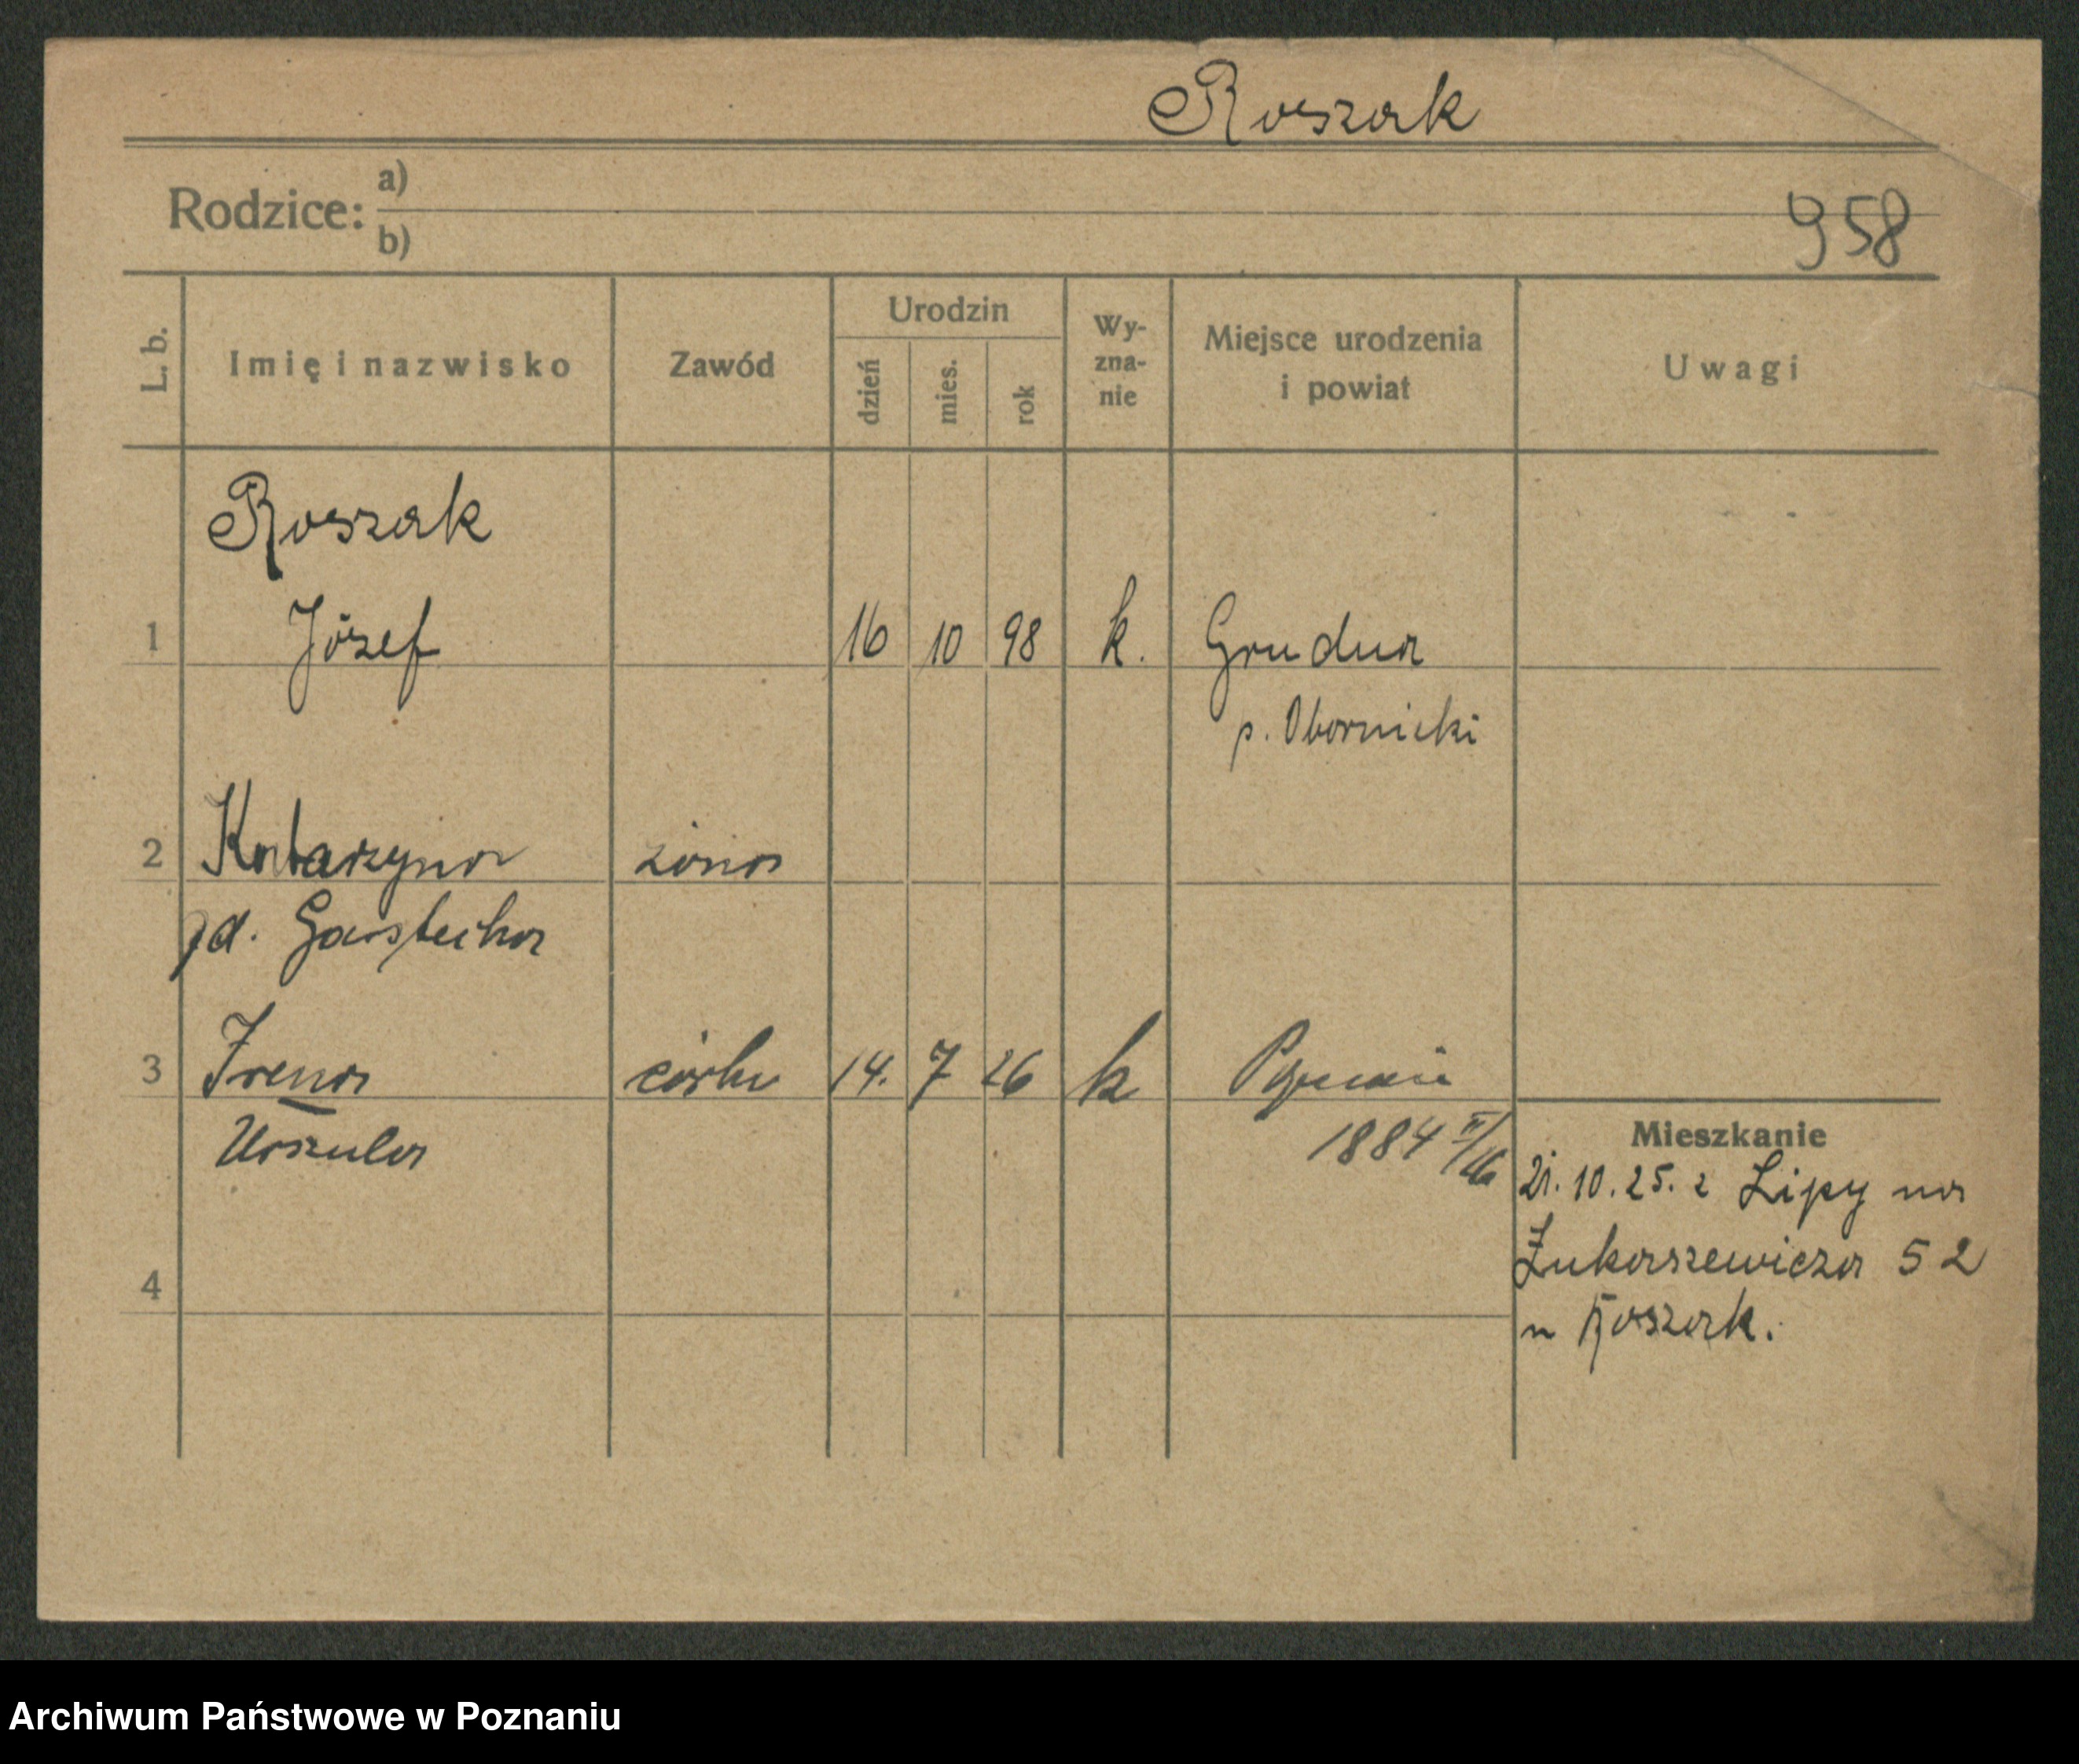 Roszak
Rodzice: a)
b)
958
L. b.
Imię i nazwisko
Zawód
Urodzin
dzień
mies.
rok
Wy-
zna-
nie
Miejsce urodzenia
i powiat
Uwagi
Roszak
1 Józef 16 10 98 k. Grudna
p. Obornicki
2 Katarzyna żona
3 Irena córka 14. 7 26 k Poznań
Urszula
1884
Mieszkanie
21.10.25. z Lipy na
Łukaszewicza 52
u Roszak.
4
Archiwum Państwowe w Poznaniu